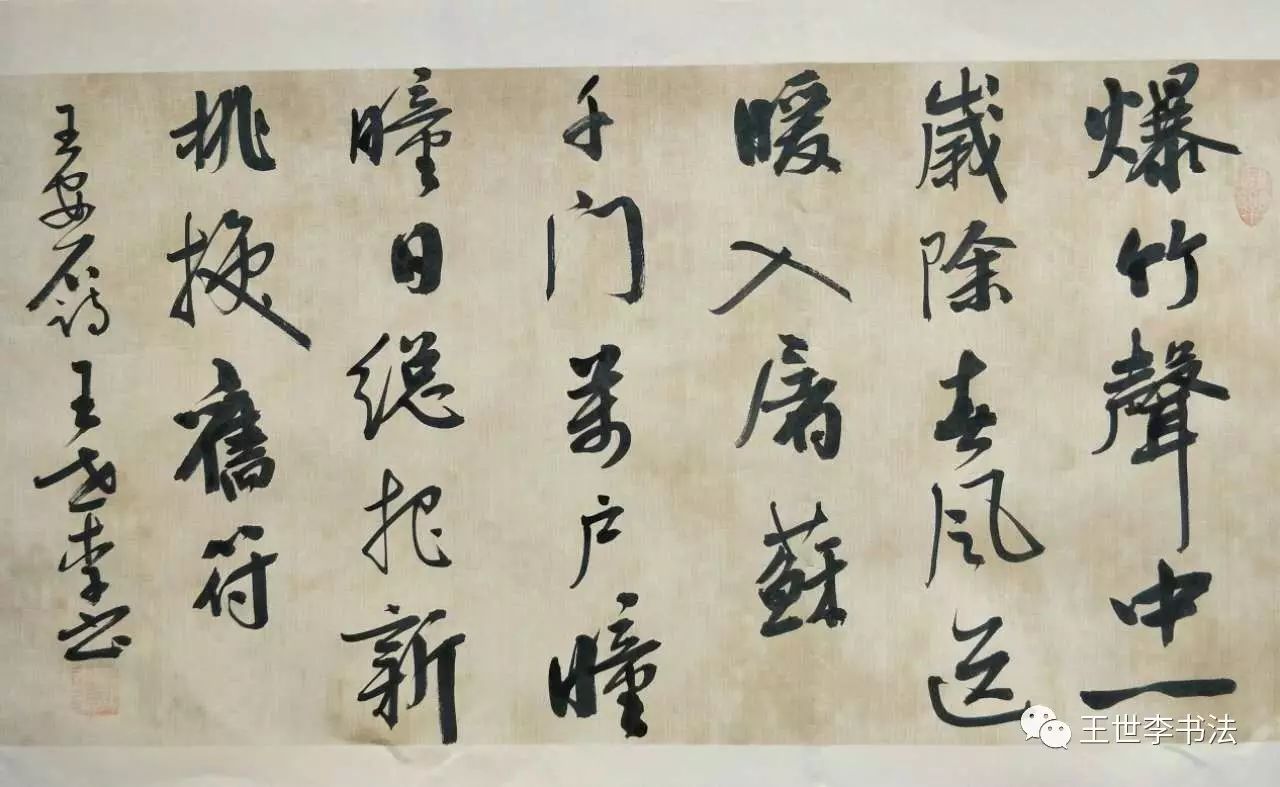 爆竹聲中一
歲除春风送
暖入屠蘇
千门萬户曈
曈日總把新
桃換舊符
王安石詩 王世李书
王世李书法